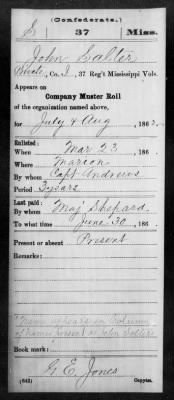 (Confederate.)
S 37 Miss.
John Salter
Private, Co. I, 37 Reg't Mississippi Vols.
Appears on
Company Muster Roll
of the organization named above,
for July & Aug, 186
Enlisted:
When Mar 23, 186
Where Marion
By whom Capt Andrews
Period 3 years
Last paid:
By whom Maj Shepard
To what time June 30, 186
Present or absent Present
Remarks:
Name appears in column
of names present as John Salter
Book mark:
G. E. Jones
(642) Copyist.